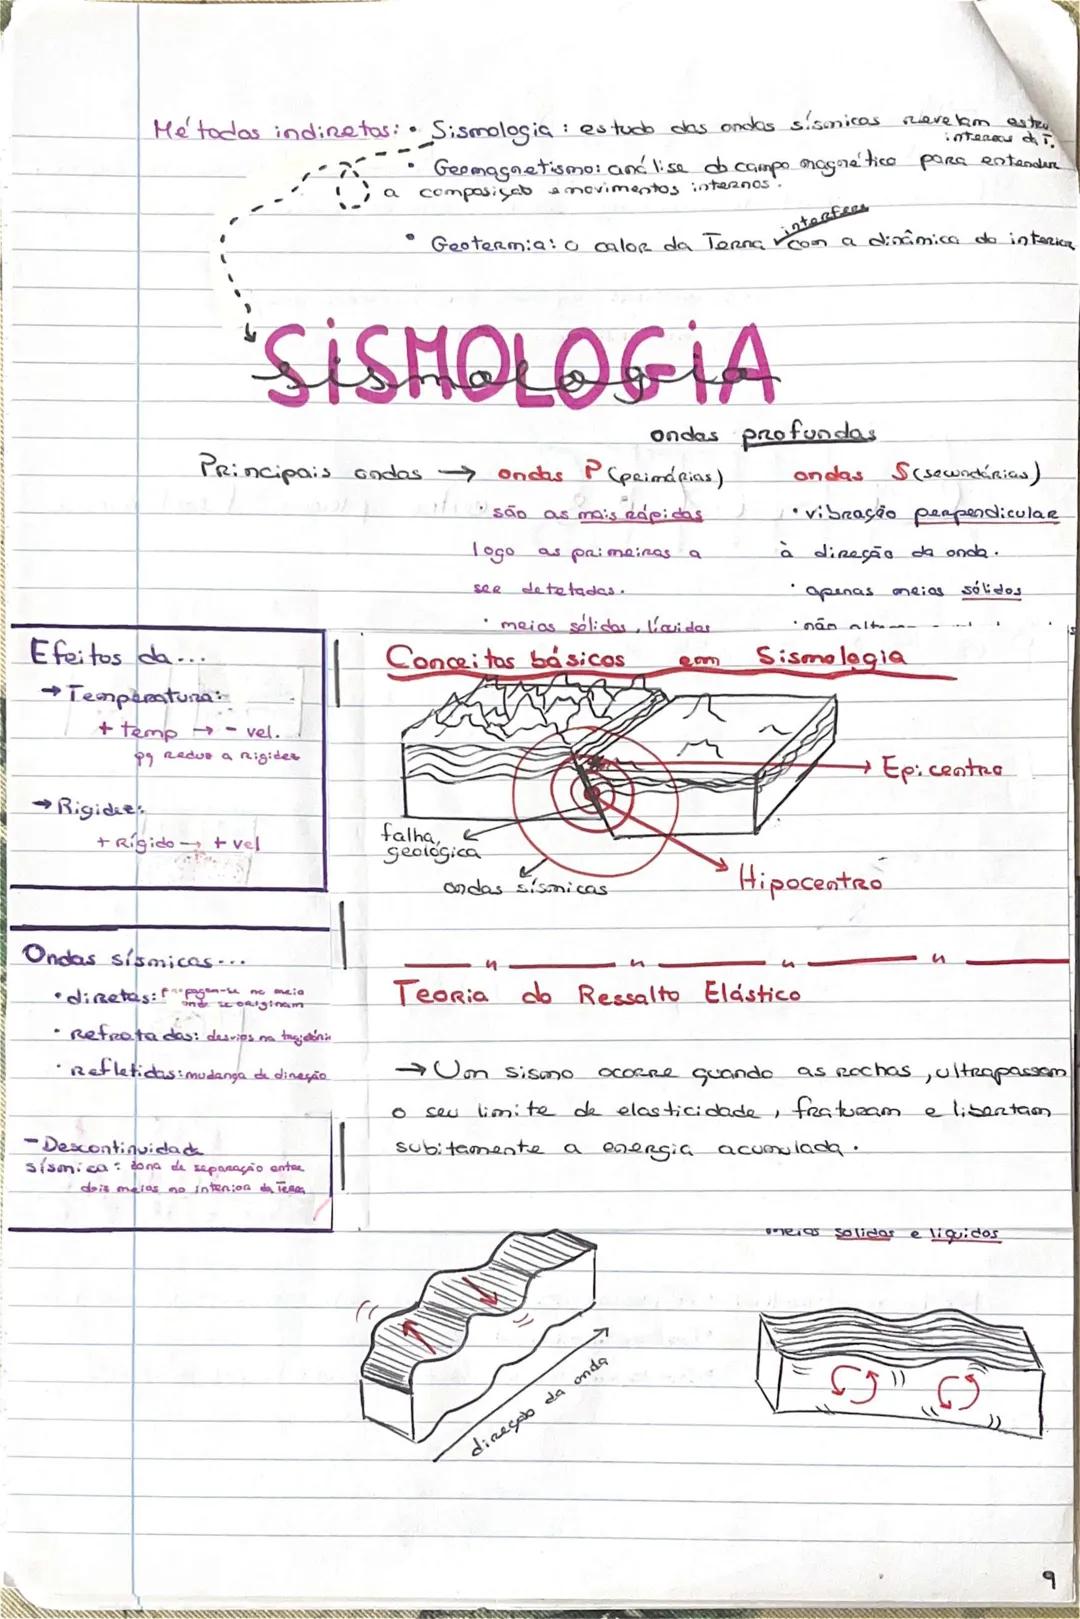 Métodos indiretos: • Sismologia: estudo das ondas sísmicas revelam
internas da T.
• Geomagnetismo: análise do campo magnético para entender
a composição e movimentos internos.
interfere
• Geotermia: o calor da Terra com a dinâmica do interior
SiSMOLOGiA
sismologia
ondas profundas
Principais ondas → ondas P (primárias)
ondas S (secundárias)
• são as mais rápidas
logo as primeiras a
ser detetadas.
• meios sólidos, líquidos
• vibração perpendicular
à direção da onda.
• apenas meios sólidos
• não
Efeitos da...
→ Temperatura:
+ temp → - vel.
pq reduz a rigidez
→ Rigidez:
+ rígido → + vel
Conceitos básicos em Sismologia
Epicentro
falha
geológica
ondas sísmicas
Hipocentro
Ondas sísmicas...
• diretas: propagam-se no meio
onde se originam
• Refratadas: desvios na trajetória
• Refletidas: mudança de direção
- Descontinuidade
sísmica: zona de separação entre
dois meios no interior da Terra
Teoria do Ressalto Elástico
→ Um sismo ocorre quando as rochas, ultrapassam
o seu limite de elasticidade, fraturam e libertam
subitamente a energia acumulada.
meios solidos e liquidos
direção da onda
9